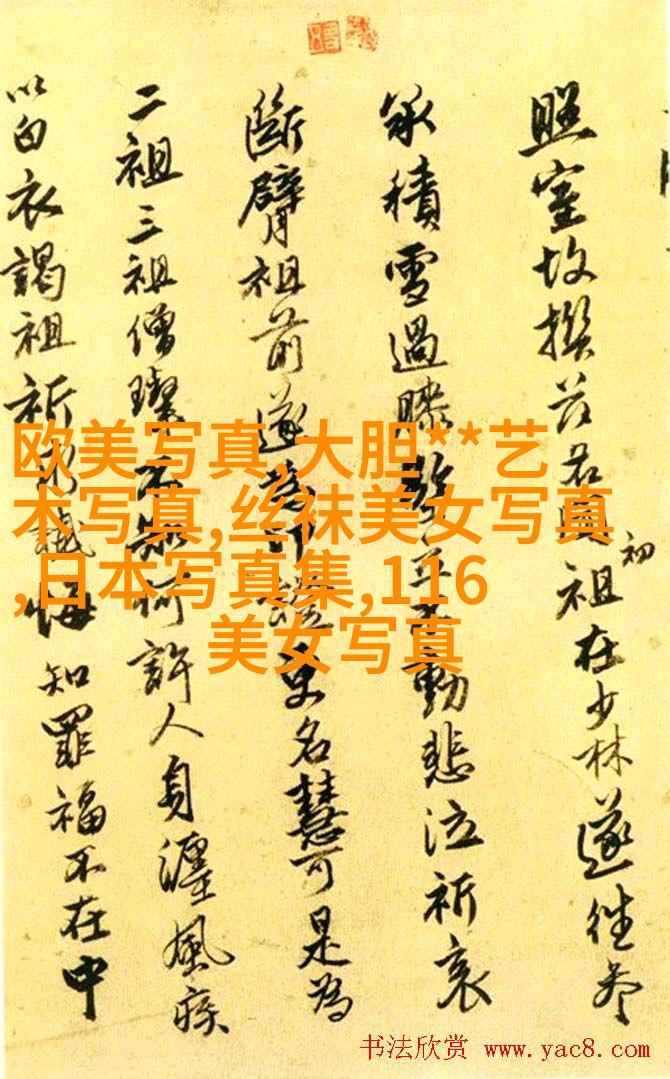 照室故名初祖在少林遂往參
承積雪過膝立不動悲泣祈哀
斷臂祖前遂為印證更名慧可是為
二祖三祖僧璨不知何許人身纏風疾
以白衣謁祖祈懺悔知罪福不在中
欧美写真,大胆**艺
术写真,丝袜美女写真
,日本写真集,116
美女写真
书法欣赏 www.yac8.com